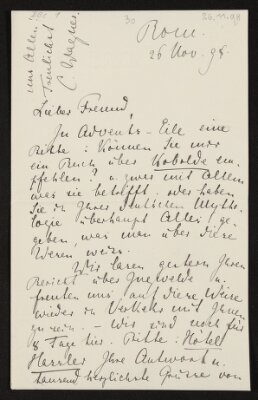 uns Allen
Freundlichst
C. Wagner.
30
26.11.98
Rom.
26 Nov. 98.
Lieber Freund,
In Advents-Eile eine
Bitte: Können Sie mir
ein Buch über Kobolde em-
pfehlen? u. zwar mit Allem
was sie betrifft. oder haben
Sie in Ihrer Deutschen Mytho-
logie überhaupt Alles ge-
geben, was man über diese
Wesen weiss.
Wir lasen gestern Ihren
Bericht über
freuten uns, auf diese Weise
wieder in Verkehr mit Ihnen
zu sein. - Wir sind noch für
8 Tage hier. Bitte: Hôtel
Hassler Ihre Antwort u.
tausend herzlichste Grüsse von